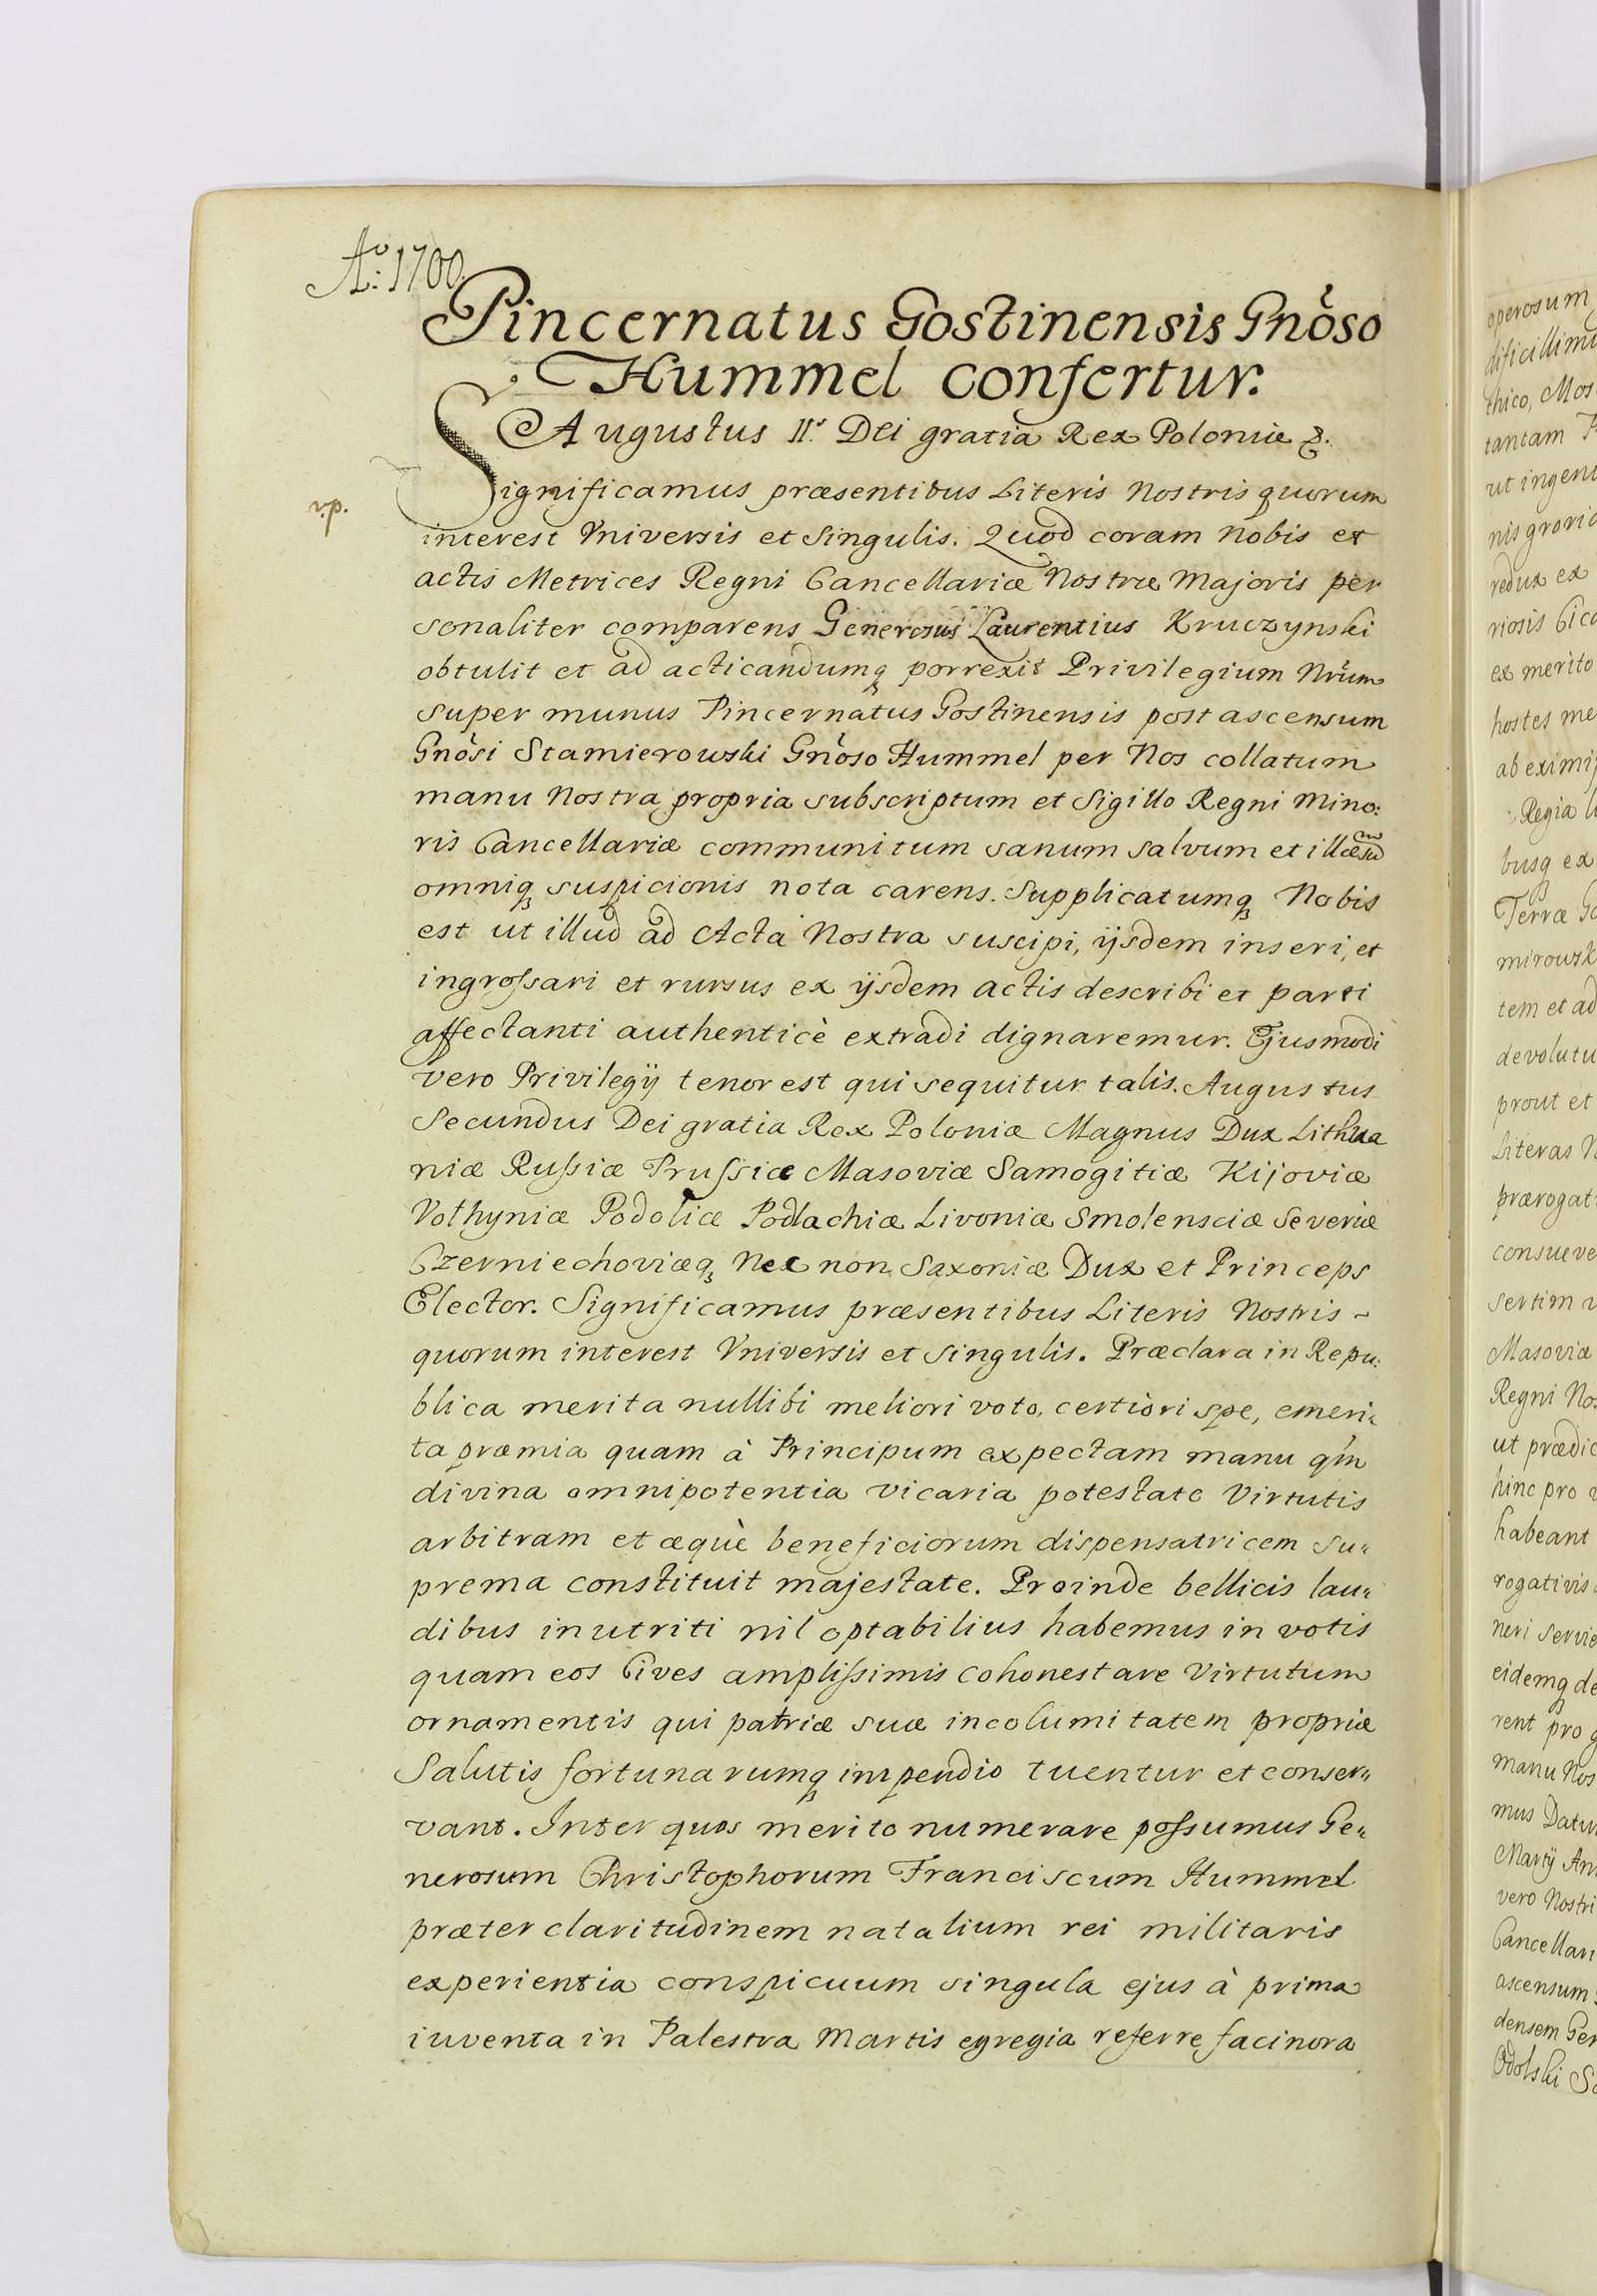 Aº: 1700.
Pincernatus Gostinensis Gnoso
Hummel confertur.
Augustus II.s Dei gratia Rex Poloniæ &.
Significamus præsentibus Literis Nostris quorum
v.p.
interest Vniversis et Singulis. Quod coram Nobis et
actis Metrices Regni Cancellariæ Nostræ Majoris per
sonaliter comparens Generosus Laurentius Kruczynski
obtulit et ad acticandumq porrexit Privilegium Nrum
super munus Pincernatus Gostinensis post ascensum
Gnosi Stamierowski Gnoso Hummel per Nos collatum
manu Nostra propria subscriptum et Sigillo Regni Mino:
ris Cancellariæ communitum sanum salvum et illæsum
omniq suspicionis nota carens. Supplicatumq Nobis
est ut illud ad Acta Nostra suscipi, ijsdem inseri, et
ingrossari et rursus ex ijsdem actis describi et parti
affectanti authenticè extradi dignaremur. Ejusmodi
vero Privilegij tenor est qui sequitur talis. Augustus
Secundus Dei gratia Rex Poloniæ Magnus Dux Lithua
niæ Russiæ Prussiæ Masoviæ Samogitiæ Kijoviæ
Volhyniæ Podoliæ Podlachiæ Livoniæ Smolensciæ Severiæ
Czerniechoviæq Nec non Saxoniæ Dux et Princeps
Elector. Significamus præsentibus Literis Nostris -
quorum interest Vniversis et Singulis. Præclara in Repu:
blica merita nullibi meliori voto, certiori spe, emeri:
ta præmia quam à Principum expectam manu qm
divina omnipotentia vicaria potestate Virtutis
arbitram et æquè beneficiorum dispensatricem Su:
prema constituit majestate. Proinde bellicis lau:
dibus inutriti nil optabilius habemus in votis
quam eos Cives amplissimis cohonestare Virtutum
ornamentis qui patriæ suæ incolumitatem propriæ
Salutis fortunarumq impendio tuentur et conser:
vant. Inter quos merito numerare possumus Ge:
nerosum Christophorum Franciscum Hummel
præter claritudinem natalium rei militaris
experientia conspicuum singula ejus à prima
iuventa in Palestra Martis egregia referre facinora
operosum
thico, Mos
tantam
ut ingen
redux ex
riosis
ex merito
hostes me
ab eximij
Regia
busq ex
Terræ Go
mirowsk
tem et ad
devolutu
prout et
Literas N
prærogat
consueve
sertim
Masoviæ
Regni Nos
ut prædic
hinc pro
habeant
rogativis
neri servie
eidemq de
rent pro g
manu Nos
mus Datum
Martij An
vero Nostri
Cancellari
ascensum
densem Gen
Odolski